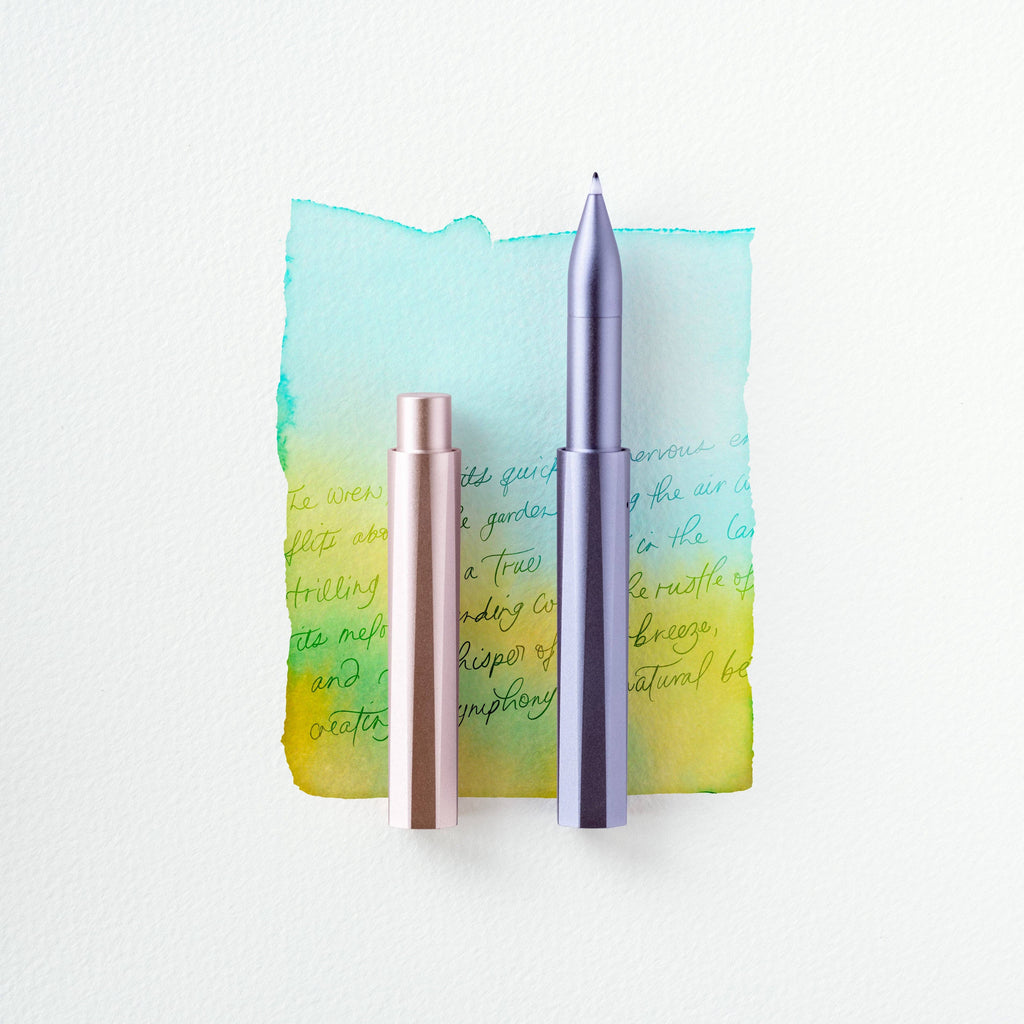 The wren its quick nervous en
flits abo e garden g the air a
trilling a true in the
its melo nding co he rustle of
and hisper of breeze,
creatin ymphony natural be